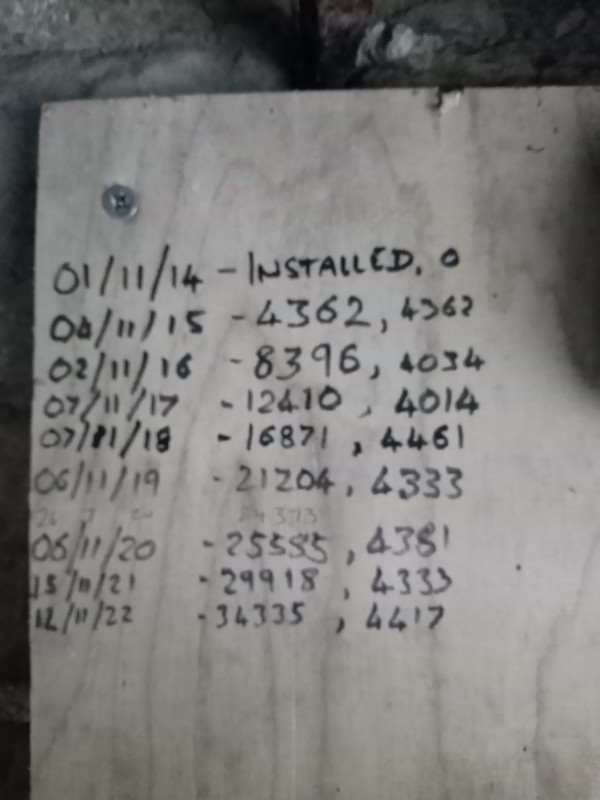 01/11/14 - INSTALLED, 0
04/11/15 - 4362, 4362
02/11/16 - 8396, 4034
07/11/17 - 12410, 4014
07/11/18 - 16871, 4461
06/11/19 - 21204, 4333
24373
06/11/20 - 25585, 4381
15/11/21 - 29918, 4333
12/11/22 - 34335, 4417